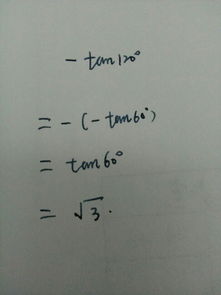 -tan120°
=-(-tan60°)
=tan60°
=√3.